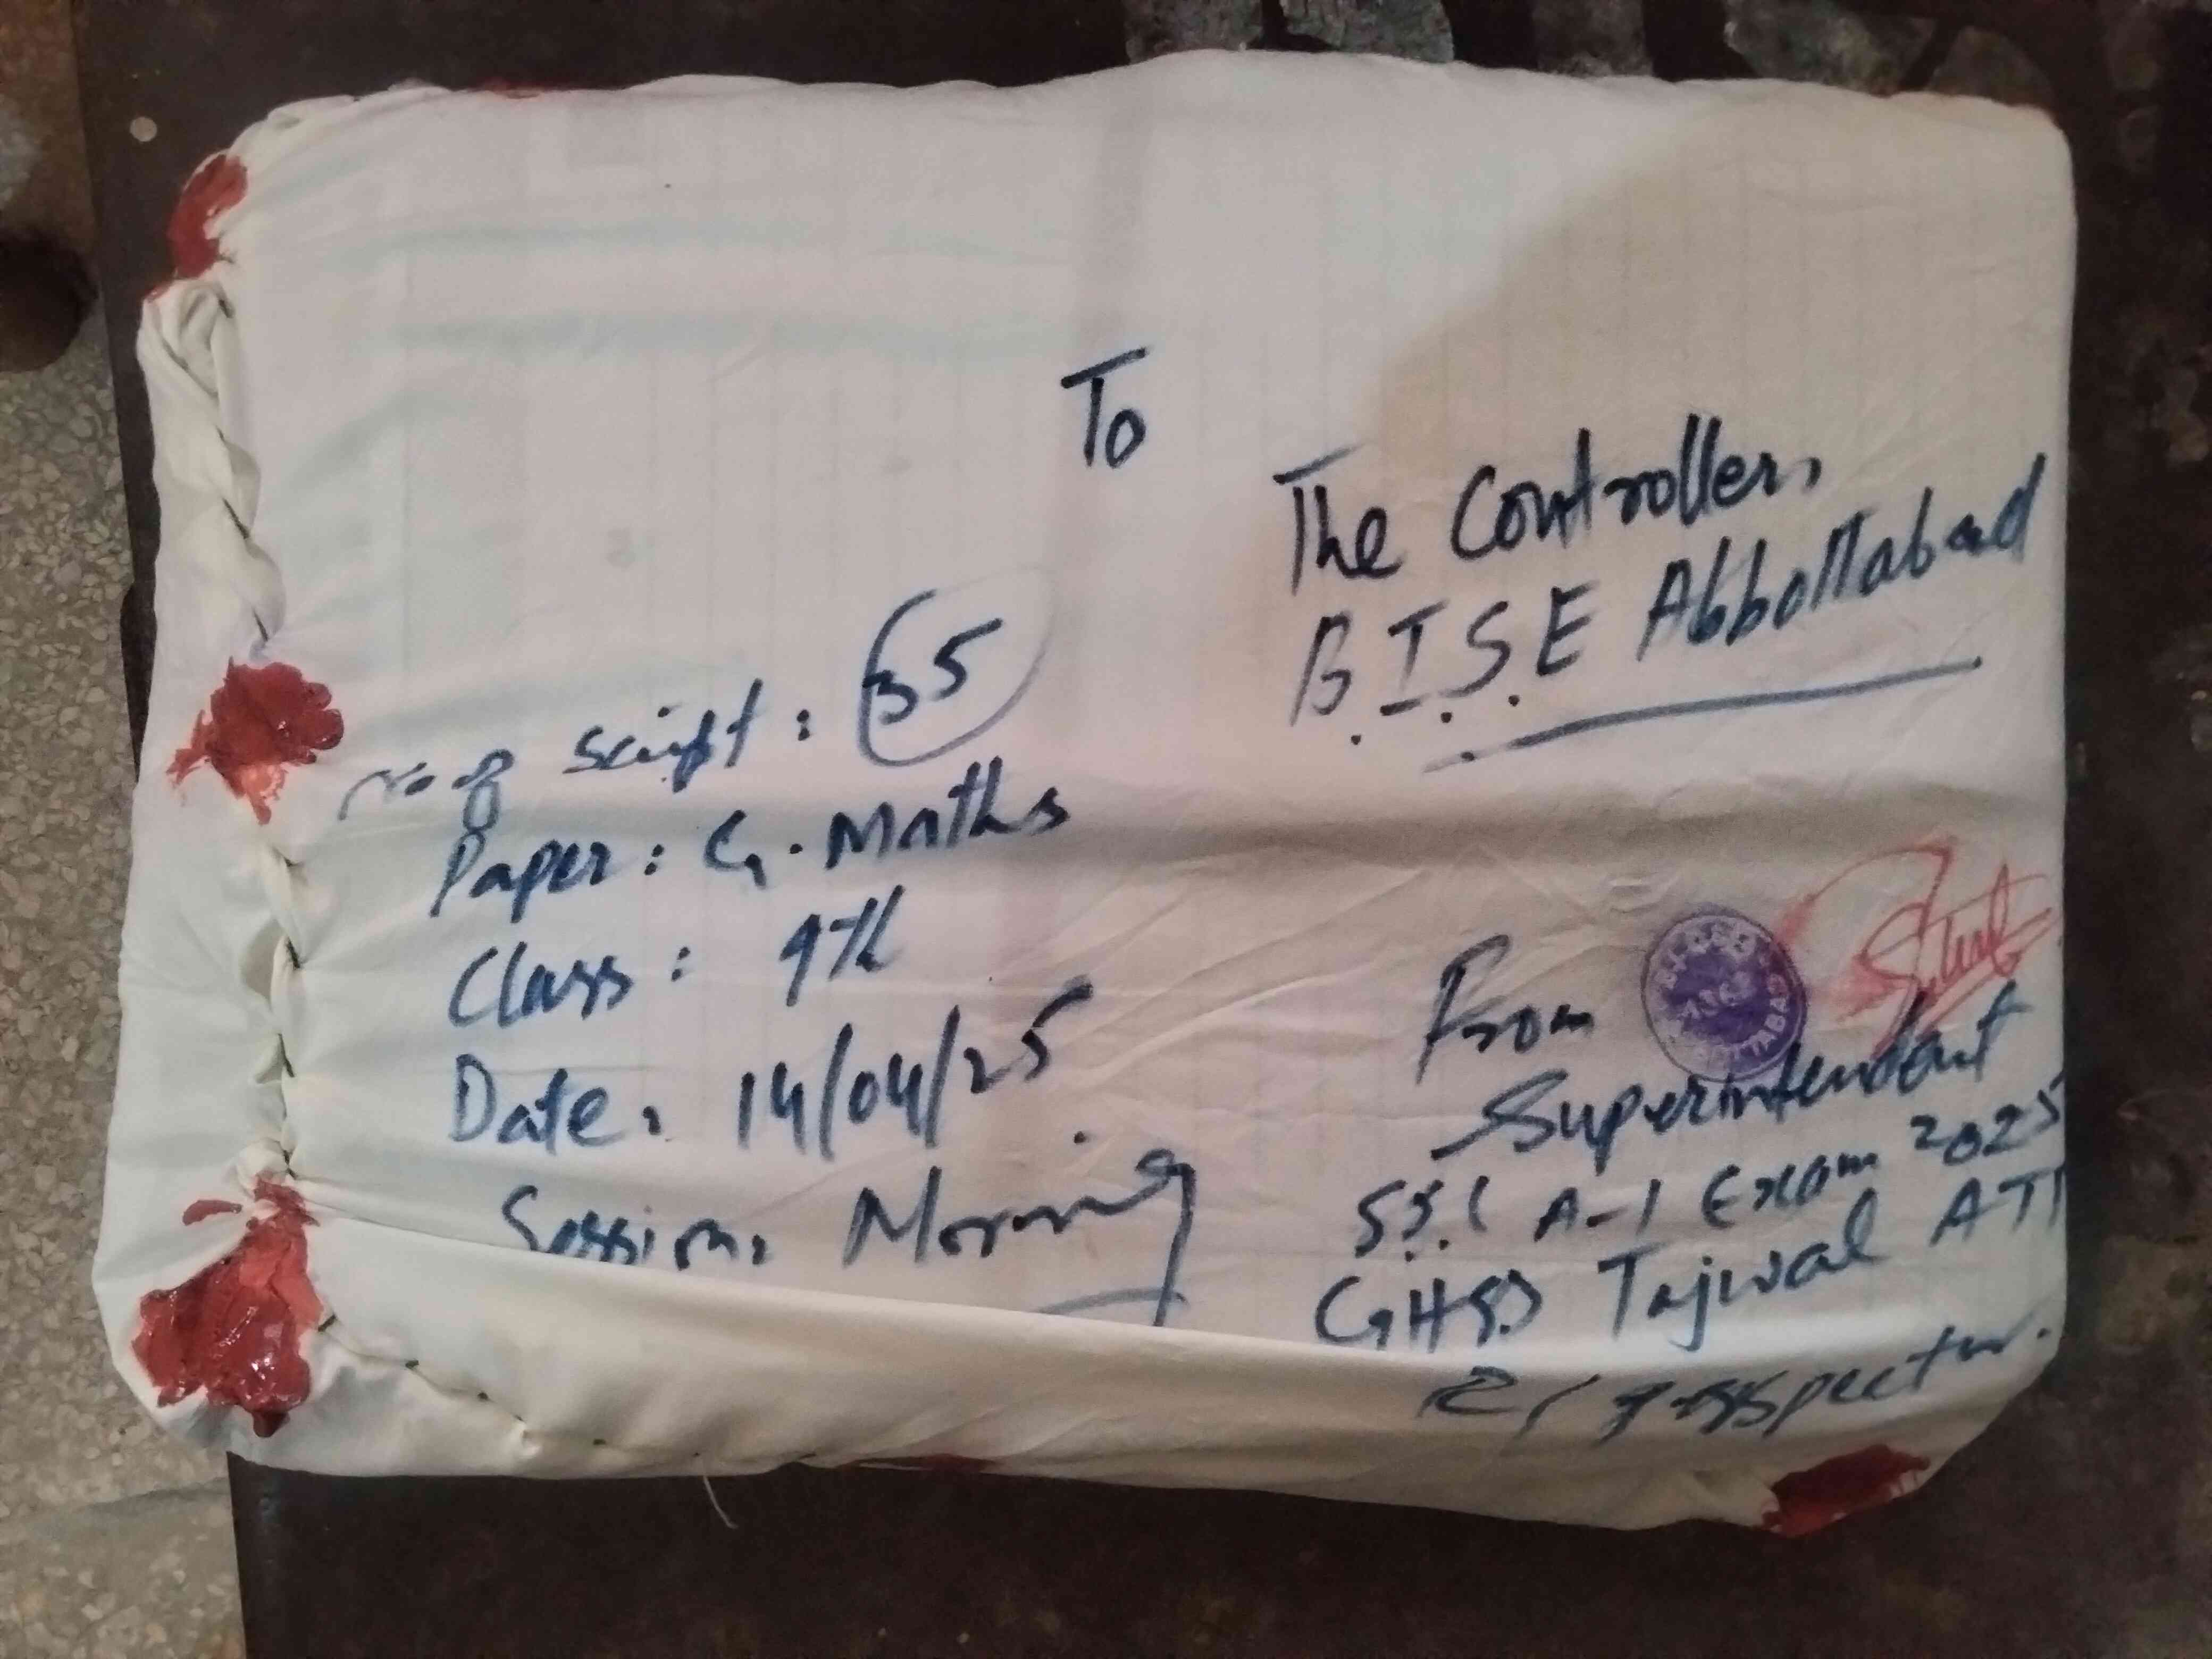 To
The Controller,
B.I.S.E Abbottabad
No of script: 35
Paper: G. Maths
Class: 9th
Date: 14/04/25
Session: Morning
From
Superintendent
SSC A-I Exam 2025
GHSS Tajwal ATD